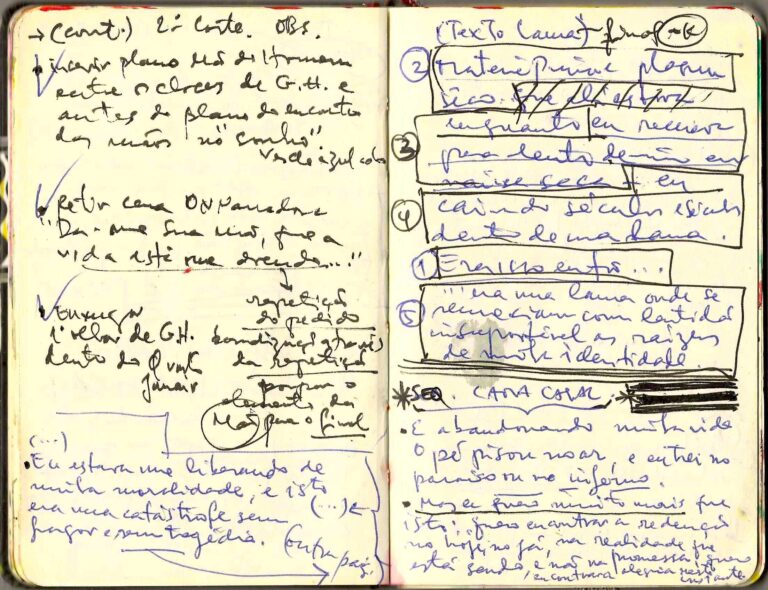 → (cont.) 2º Corte. OBS.
• inserir plano Mão do Homem
entre closes de G.H. e
antes do plano do encontro
das mãos no "sonho"
• Retir cena
"Da-me sua mão, que a
vida está me doendo..."
repetição
do pedido
• Enxugar
1º olhar de G.H.
dentro do Quarto
Janair
da repetição
elemento da
Mão para o final
(...)
• Eu estava me liberando de
minha moralidade, e isto (...) ←
era uma catástrofe sem
fragor e sem tragédia.
(outra pag.)
(Texto Lama) - final OK
② matéria prima e plasma
seco
③ enquanto eu recuava
para dentro de mim em
náusea seca + eu
④ caindo séculos e séculos
dentro de uma lama.
① Era isso então...
⑤ "era uma lama onde se
remexiam com lentidão
insuportável as raízes
de minha identidade.
* SEQ. CAMA CASAL *
• E abandonando minha vida
O pé pisou no ar, e entrei no
paraíso ou no inferno.
• Mas eu quero muito mais que
isto: quero encontrar a redenção
no hoje, no já, na realidade que
está sendo, e não na promessa, quero
encontrar a alegria neste
instante